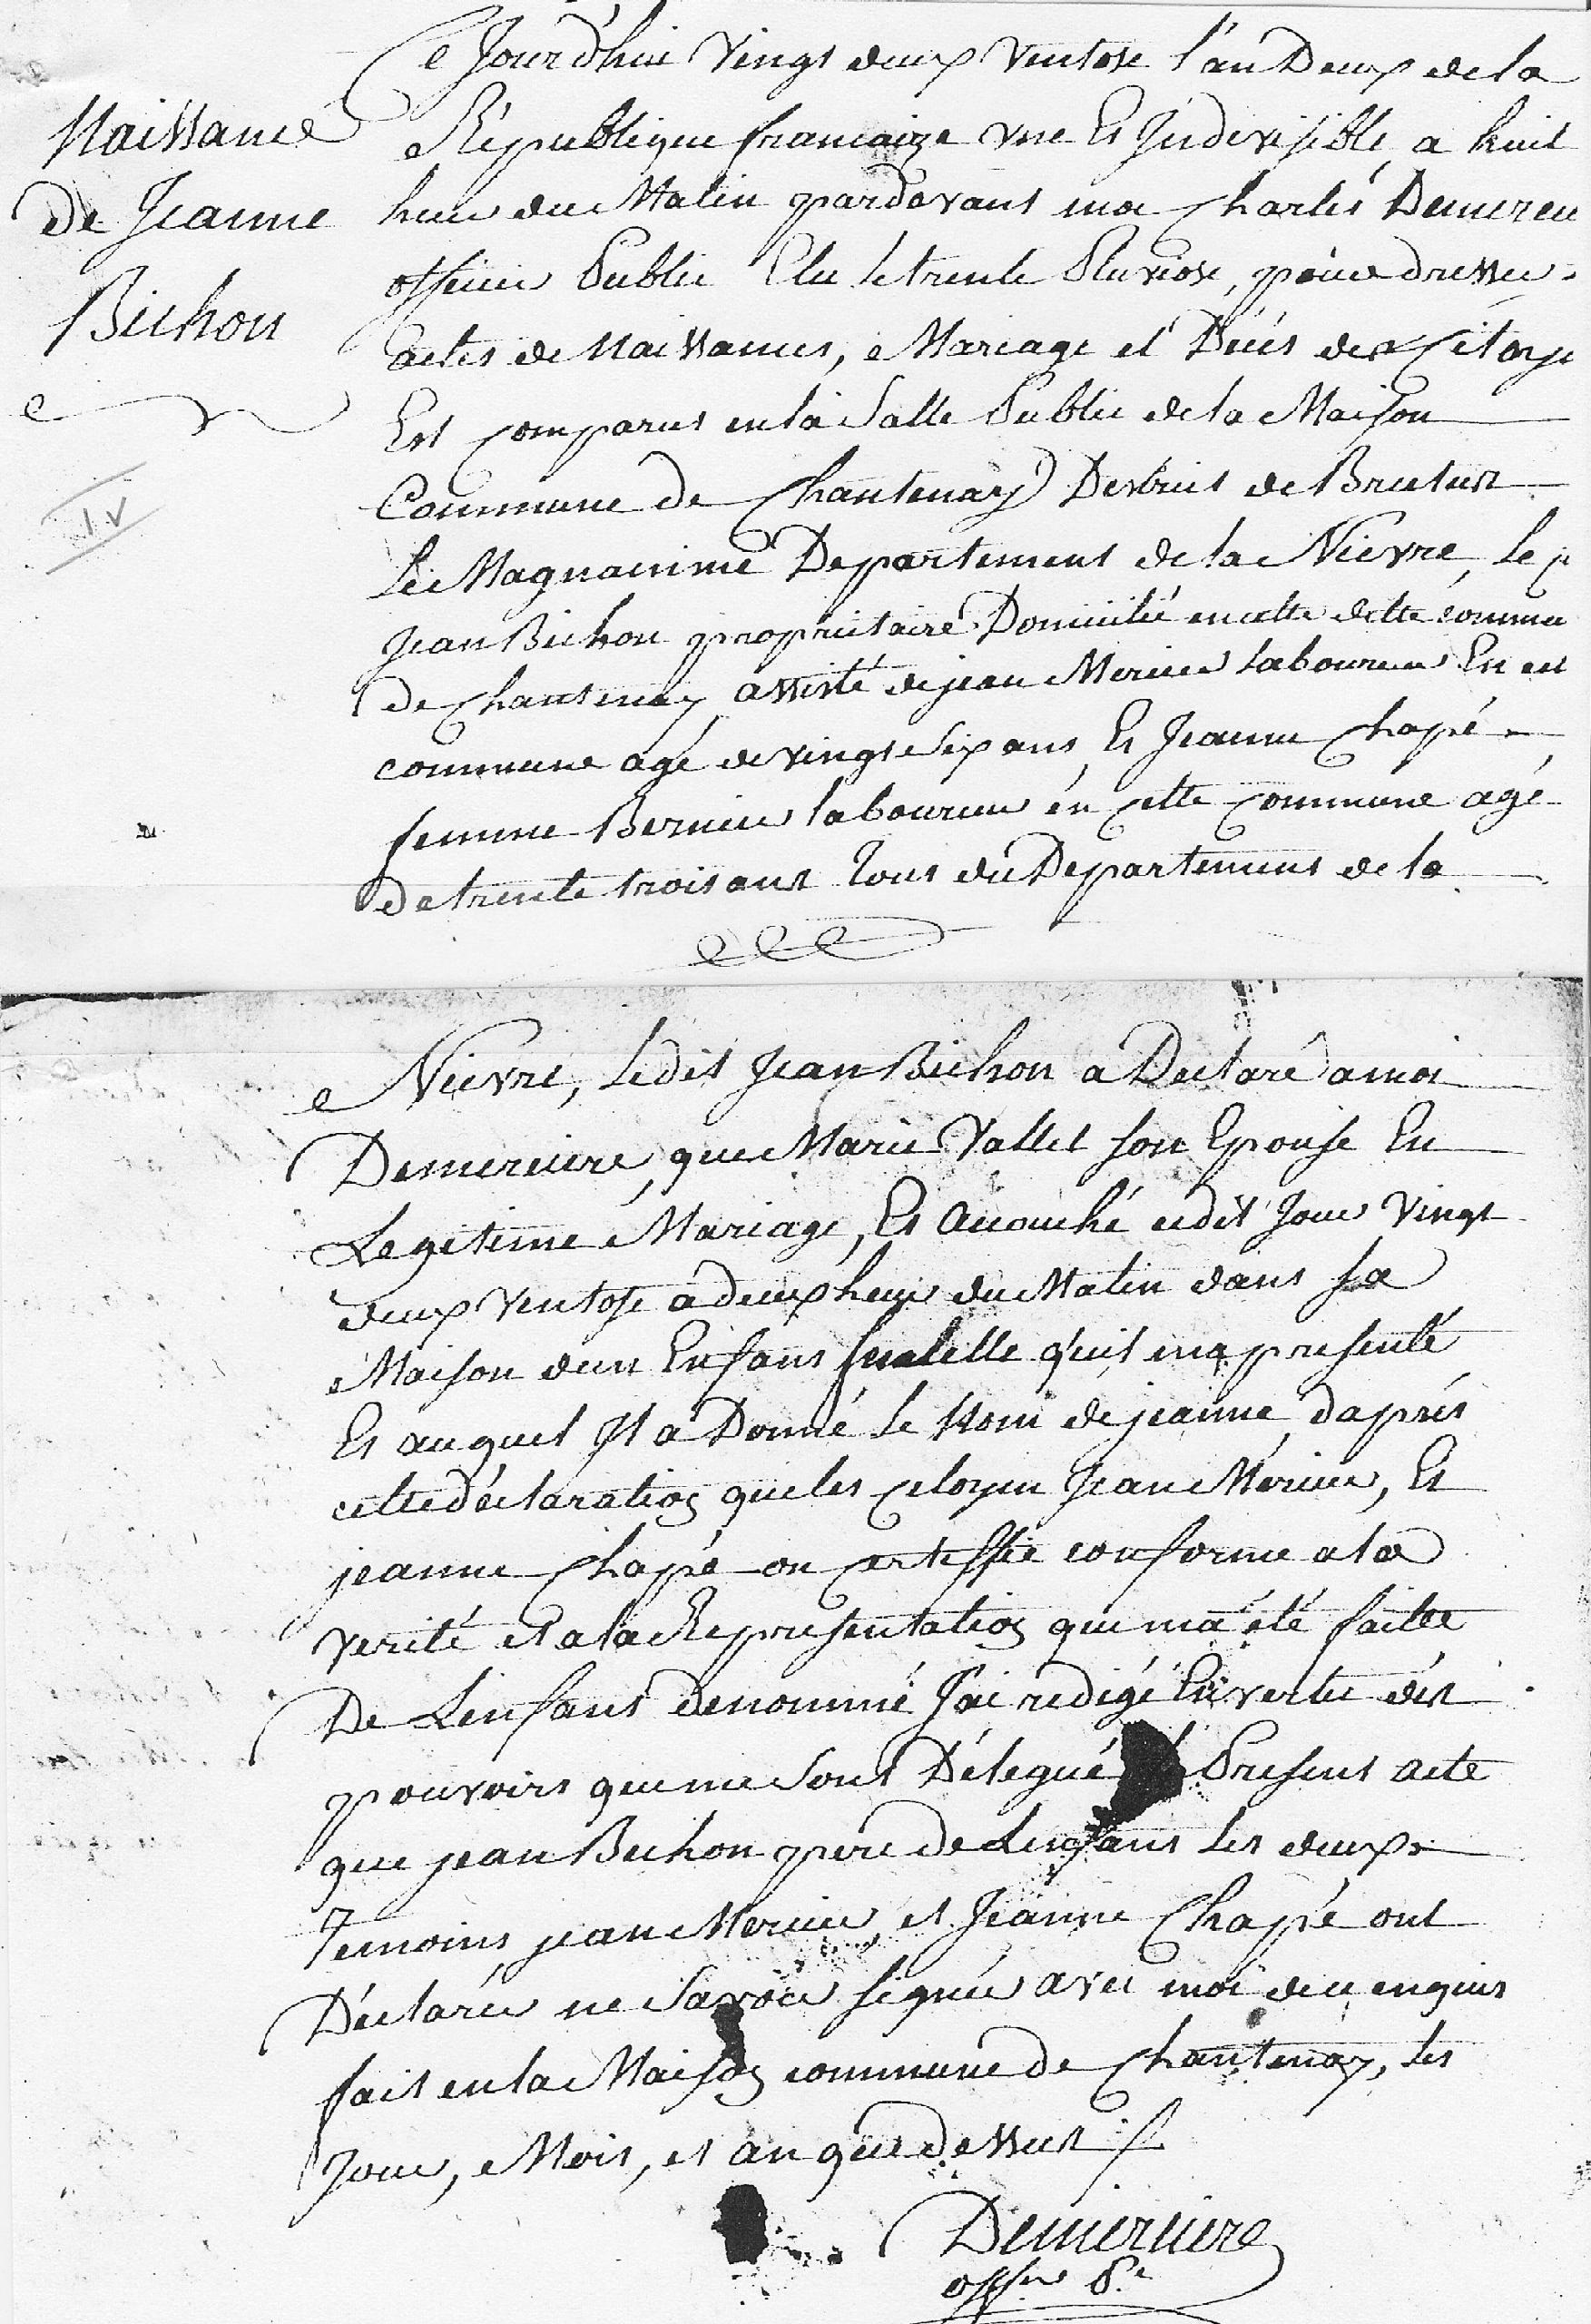 Naissance
de Jeanne
Bichon
Ce Jourd'hui vingt deux ventose l'an Deux de la
Republique francaize une Et Indivisible a huit
heure du Matin pardevant moi Charles Demereu
officier Public Elu le trente Pluviose, pour dresser
actes de Naissances, Mariage et Décés des Citoye
Est comparus en la Salle Public de la Maison
Commune de Chantenay District de Brutus
Le Magnanime Departement de la Nievre, Le
Jean Bichon proprietaire Domicilié en cette ditte commu
de Chantenay assisté de jean Mercier laboureur En cet
commune agé de vingt Six ans Et Jeanne Chapé
femme Bernier laboureur en cette Commune agé
de trente trois ans tous du Departement de la
Nievre, Ledit Jean Bichon a Declaré a moi
Demerciere, que Marie Vallet son Epouse En
Legitime Mariage, Est accouché cedit Jour vingt
deux ventose a deux heure du Matin dans sa
Maison d'un Enfant femelle qu'il ma presenté
Et auquel Il a Donné le Nom de jeanne daprés
cette déclaration que les citoyen Jean Mercier, Et
jeanne Chapé on certiffié conforme a la
verité et a la Representation qui ma été faitte
De Lenfant denommé J'ai redigé En vertu des
pouvoirs que me sont Délegué le Present acte
que jean Bichon pere de Lenfant les deux
Temoins jean Mercier et Jeanne Chapé ont
Déclarer ne Savoir signer avec moi de ce enquis
fait en la Maison commune de Chantenay, les
Jour, Mois, et an que dessus
Demerciere
offier P.c